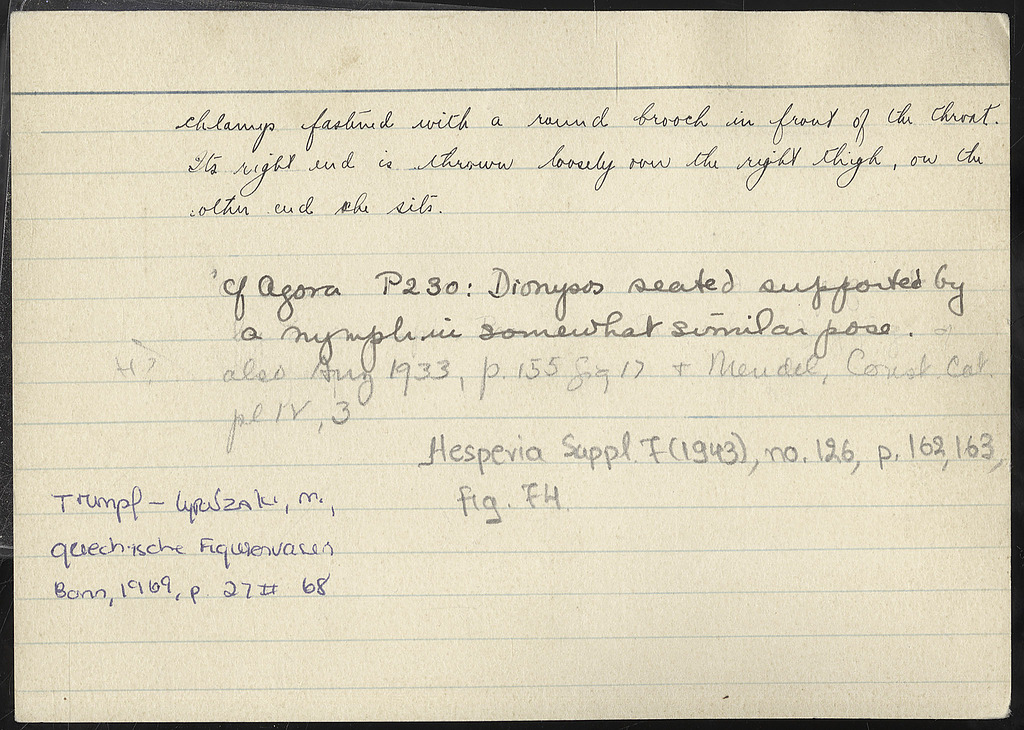 chlamys fastened with a round brooch in front of the throat.
Its right end is thrown loosely over the right thigh, on the
other end she sits.
cf Agora P230: Dionysos seated supported by
a nymph in somewhat similar pose.
H? also 1933, p. 155 fig 17 + Mendel, Const. Cat.
pl IV, 3
Hesperia Suppl. 7 (1943), no. 126, p. 162, 163,
fig. 74
Trumpf - Lyritzaki, M.,
Griechische Figurenvasen
Bonn, 1969, p. 27 # 68